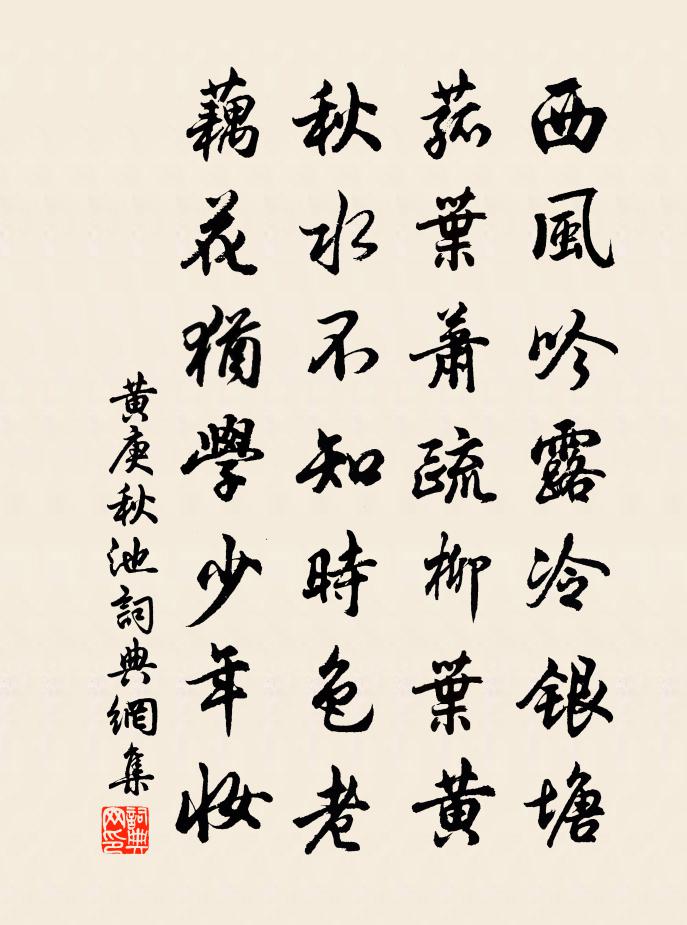 西風吟露冷銀塘
菰葉蕭疏柳葉黃
秋水不知時色老
藕花猶學少年妝
黃庚秋池詞典網集
詞典網印